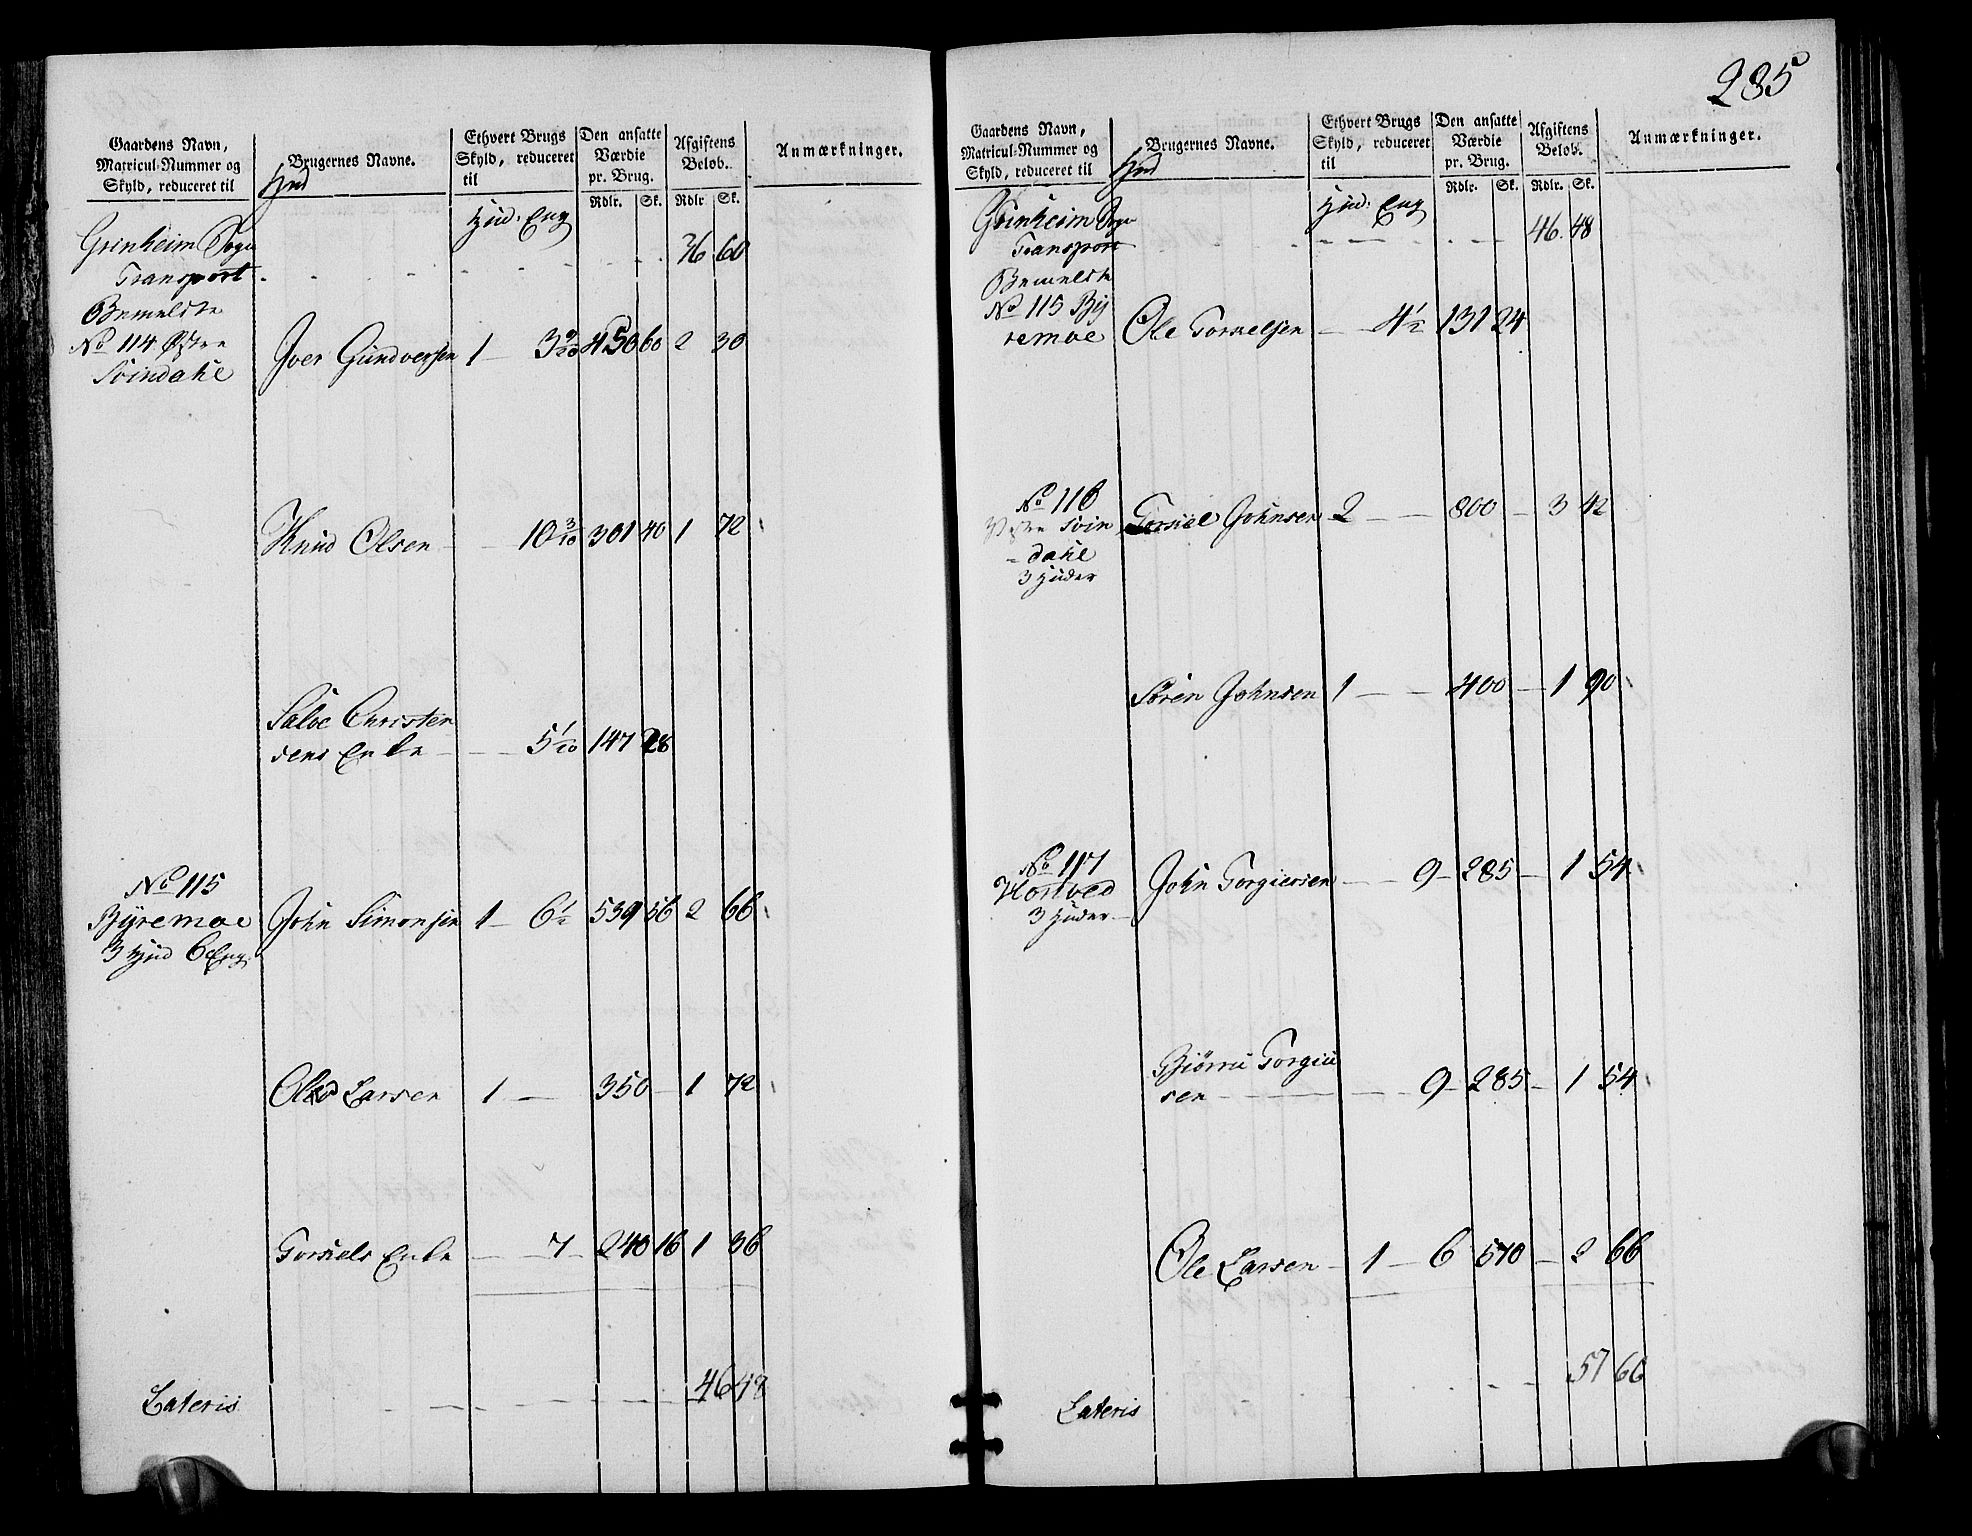 285
Gaardens Navn, Matricul-Nummer og Skyld, reduceret til
Brugernes Navne.
Ethvert Brugs Skyld, reduceret til
Den ansatte Værdie pr. Brug.
Afgiftens Beløb.
Anmærkninger.
Hud
Hud. Eng
Rdlr. Sk. Rdlr Sk.
Grinheim Sogn
Transport 60
Bemeldte
No 114 Østre
Svindahl
Iver Gundversen 1 — 3 9/10 450 60 2 30
Knud Olsen — 10 3/10 301 40 1 72
Salve Christen
sens Enke — 5 1/10 147 28
No 115
Byremoe
3 Hud 6 Eng
John Simonsen 1 — 6 1/2 539 56 2 66
Ole Larsen 1 — 350 — 1 72
Torkels Enke — 7 — 240 16 1 36
Lateris 46 48
Gaardens Navn, Matricul-Nummer og Skyld, reduceret til
Brugernes Navne.
Ethvert Brugs Skyld, reduceret til
Den ansatte Værdie pr. Brug.
Afgiftens Beløb.
Anmærkninger.
Hud
Hud. Eng
Rdlr. Sk. Rdlr. Sk.
Grinheim Sogn
Transport 46 48
Bemeldte
No 115 By
remoe
Ole Torkelsen — 4 1/2 131 24
No 116
Svin
dahl
3 Huder
Torkel Johnsen 2 — — 800 — 3 42
Søren Johnsen 1 — — 400 — 1 90
No 117
3 Huder
John Torgiersen — 9 — 285 — 1 54
Biørn Torgier
sen — 9 — 285 — 1 54
Ole Larsen 1 — 6 570 — 2 66
Lateris 57 66